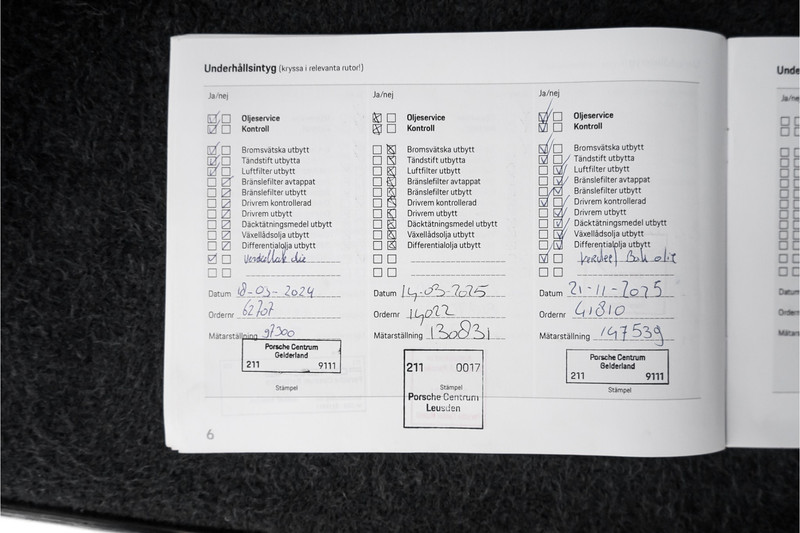 Underhållsintyg (kryssa i relevanta rutor!)
Ja/nej
Oljeservice
Kontroll
Bromsvätska utbytt
Tändstift utbytta
Luftfilter utbytt
Bränslefilter avtappat
Bränslefilter utbytt
Drivrem kontrollerad
Drivrem utbytt
Däcktätningsmedel utbytt
Växellådsolja utbytt
Differentialolja utbytt
Datum 18-03-2024
Ordernr 62707
Mätarställning 97300
Porsche Centrum
Gelderland
211 9111
Stämpel
6
Ja/nej
Oljeservice
Kontroll
Bromsvätska utbytt
Tändstift utbytta
Luftfilter utbytt
Bränslefilter avtappat
Bränslefilter utbytt
Drivrem kontrollerad
Drivrem utbytt
Däcktätningsmedel utbytt
Växellådsolja utbytt
Differentialolja utbytt
Datum 14-03-2025
Ordernr 14022
Mätarställning 130831
211 0017
Stämpel
Porsche Centrum
Leusden
Ja/nej
Oljeservice
Kontroll
Bromsvätska utbytt
Tändstift utbytta
Luftfilter utbytt
Bränslefilter avtappat
Bränslefilter utbytt
Drivrem kontrollerad
Drivrem utbytt
Däcktätningsmedel utbytt
Växellådsolja utbytt
Differentialolja utbytt
verdeel Bak olie
Datum 21-11-2025
Ordernr 41810
Mätarställning 147539
Porsche Centrum
Gelderland
211 9111
Stämpel
Unde
Ja/ne
Datum
Order
Mätar